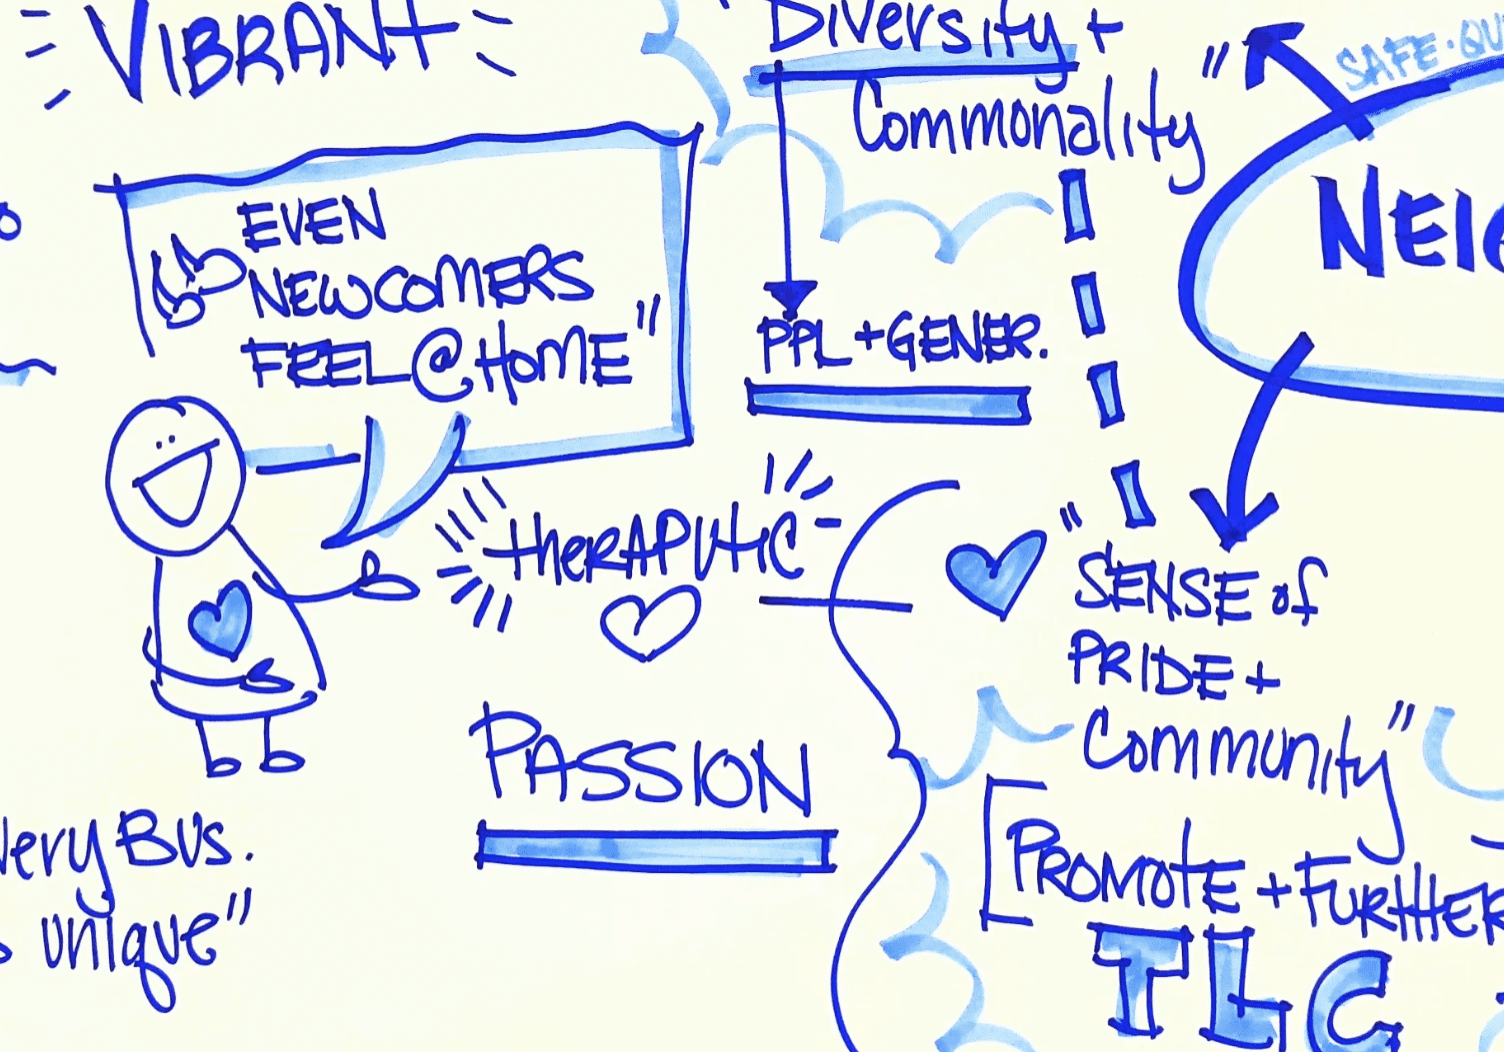 VIBRANT
Diversity +
Commonality"
SAFE·QU
EVEN
NEWCOMERS
FEEL @ HOME"
NEIG
PPL + GENER.
"SENSE of
PRIDE +
Community"
theRAPUtIC
PASSION
very Bus.
unique"
[PROMOTE + FURTHER
TLC